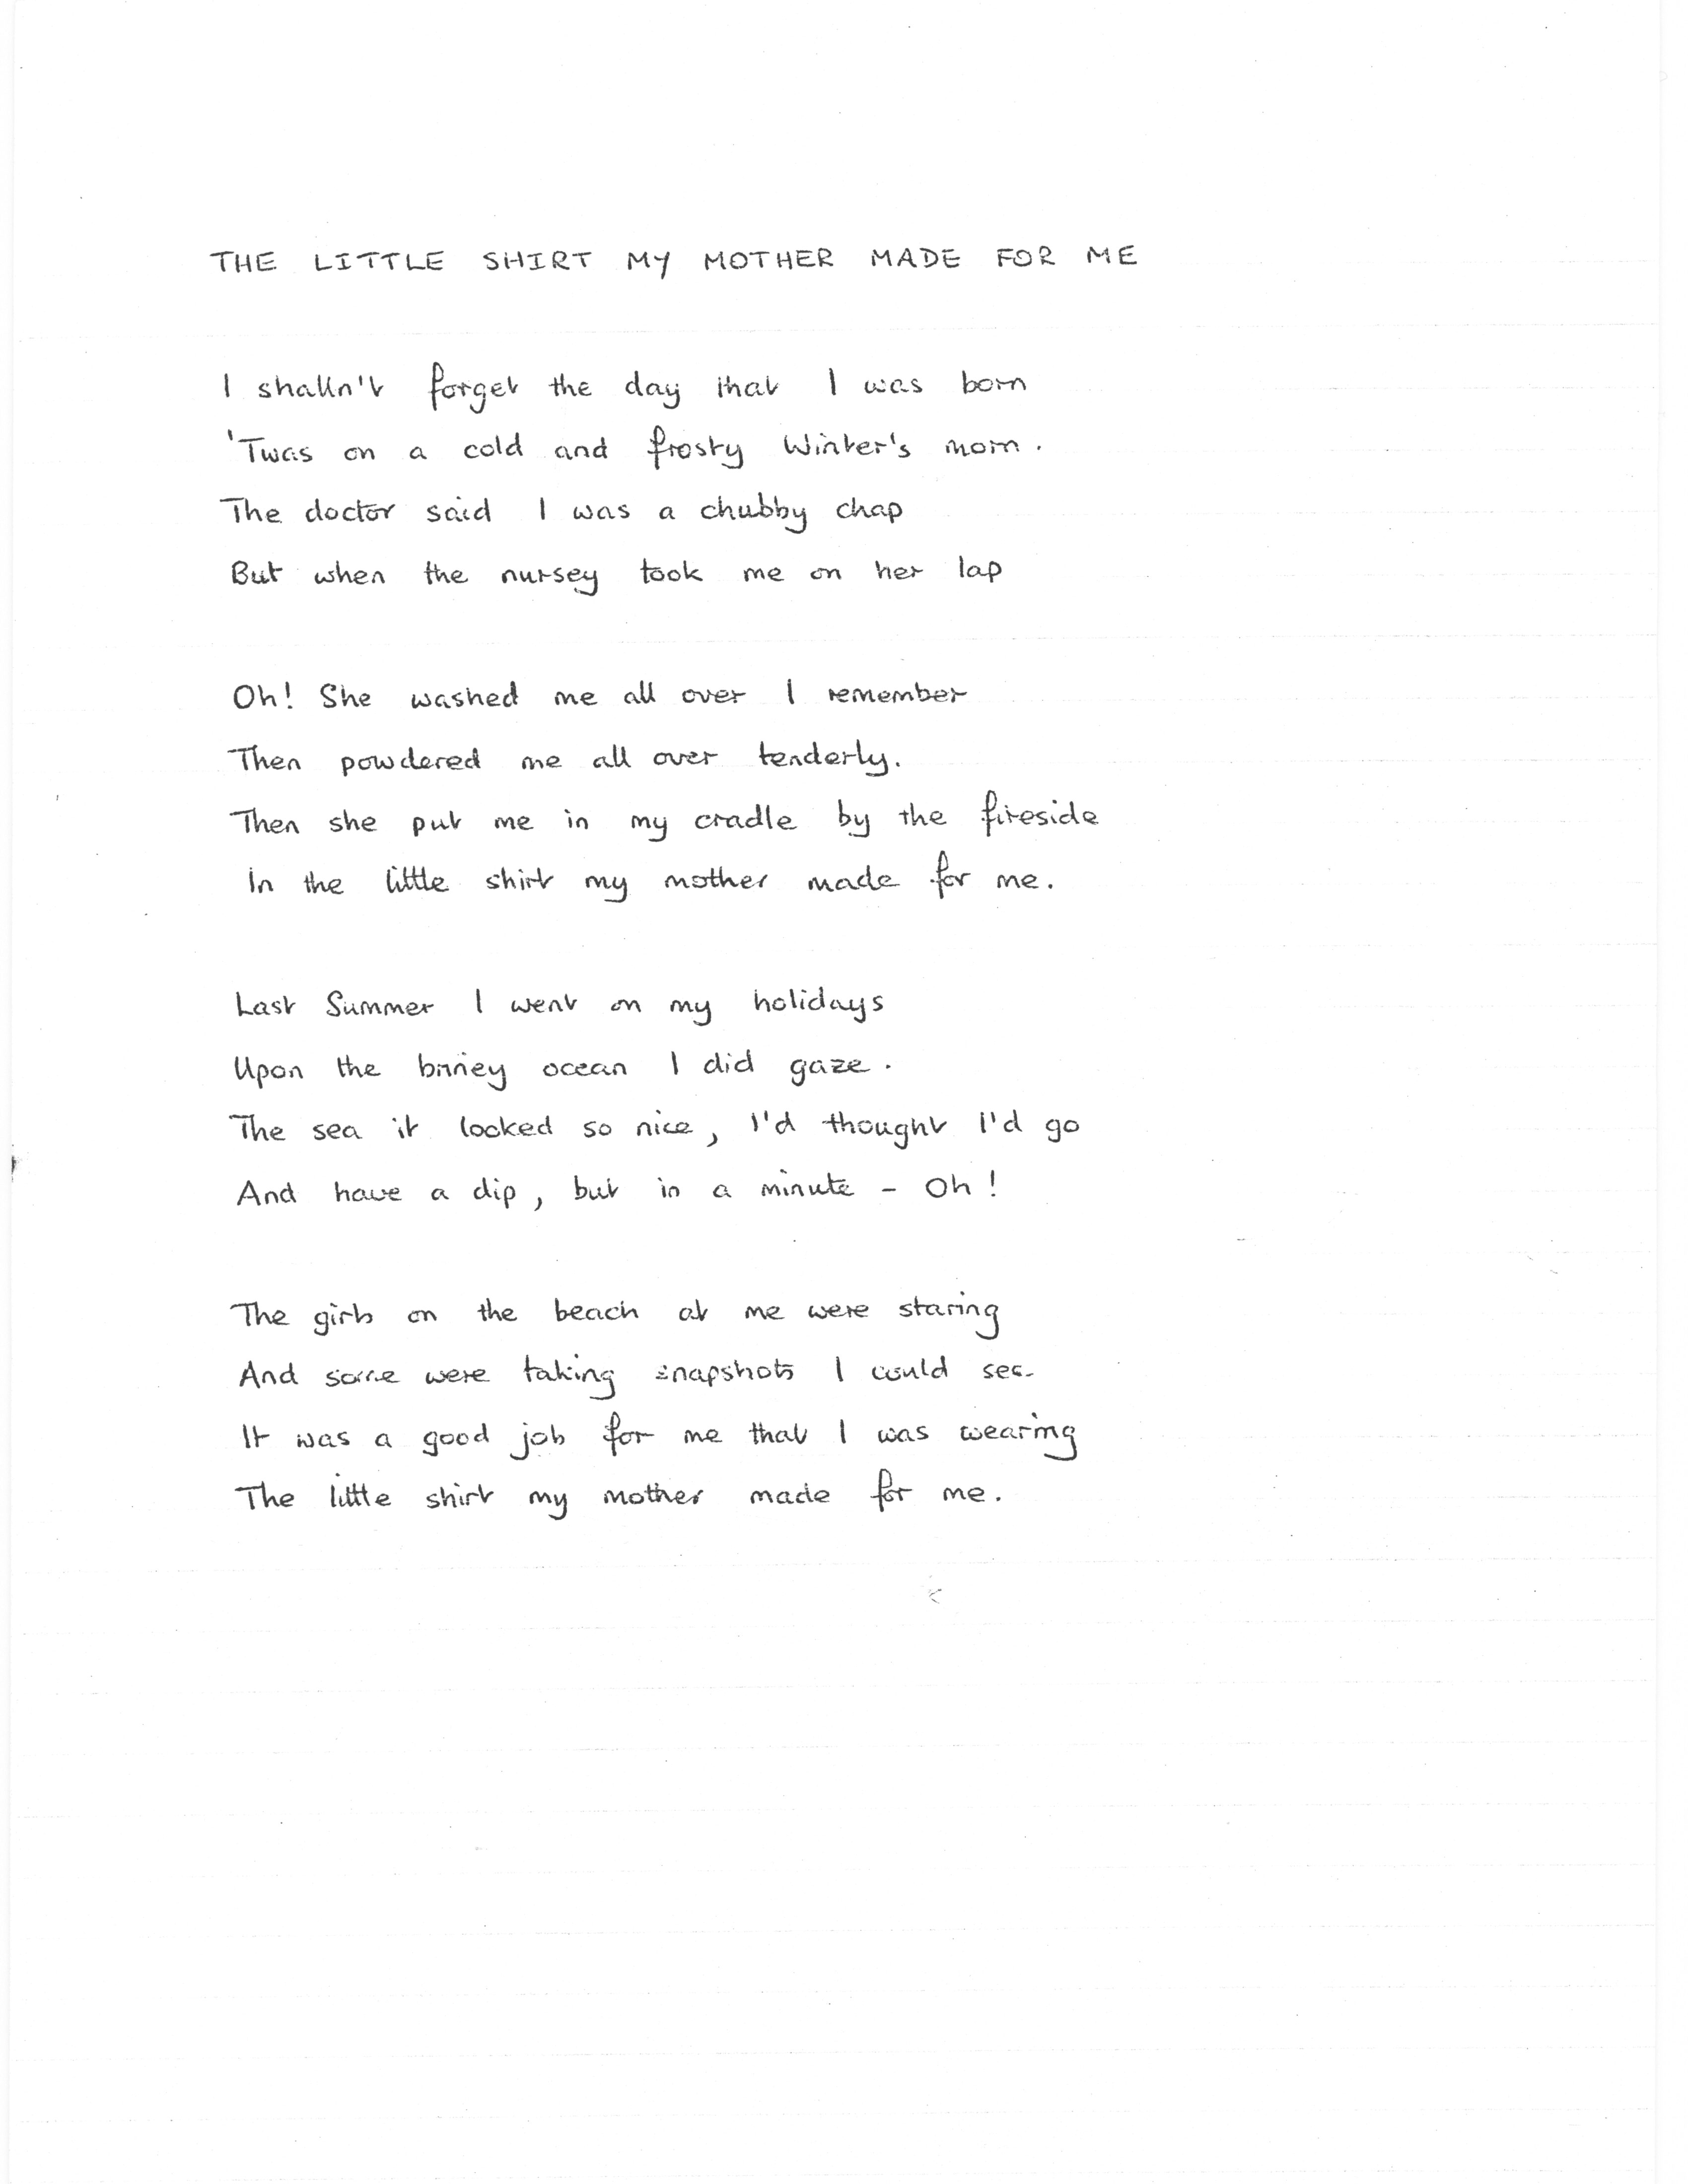 THE LITTLE SHIRT MY MOTHER MADE FOR ME
I shalln't forget the day that I was born
'Twas on a cold and frosty Winter's morn.
The doctor said I was a chubby chap
But when the nursey took me on her lap
Oh! She washed me all over I remember
Then powdered me all over tenderly.
Then she put me in my cradle by the fireside
In the little shirt my mother made for me.
Last Summer I went on my holidays
Upon the briney ocean I did gaze.
The sea it looked so nice, I'd thought I'd go
And have a dip, but in a minute - Oh!
The girls on the beach at me were staring
And some were taking snapshots I could see.
It was a good job for me that I was wearing
The little shirt my mother made for me.